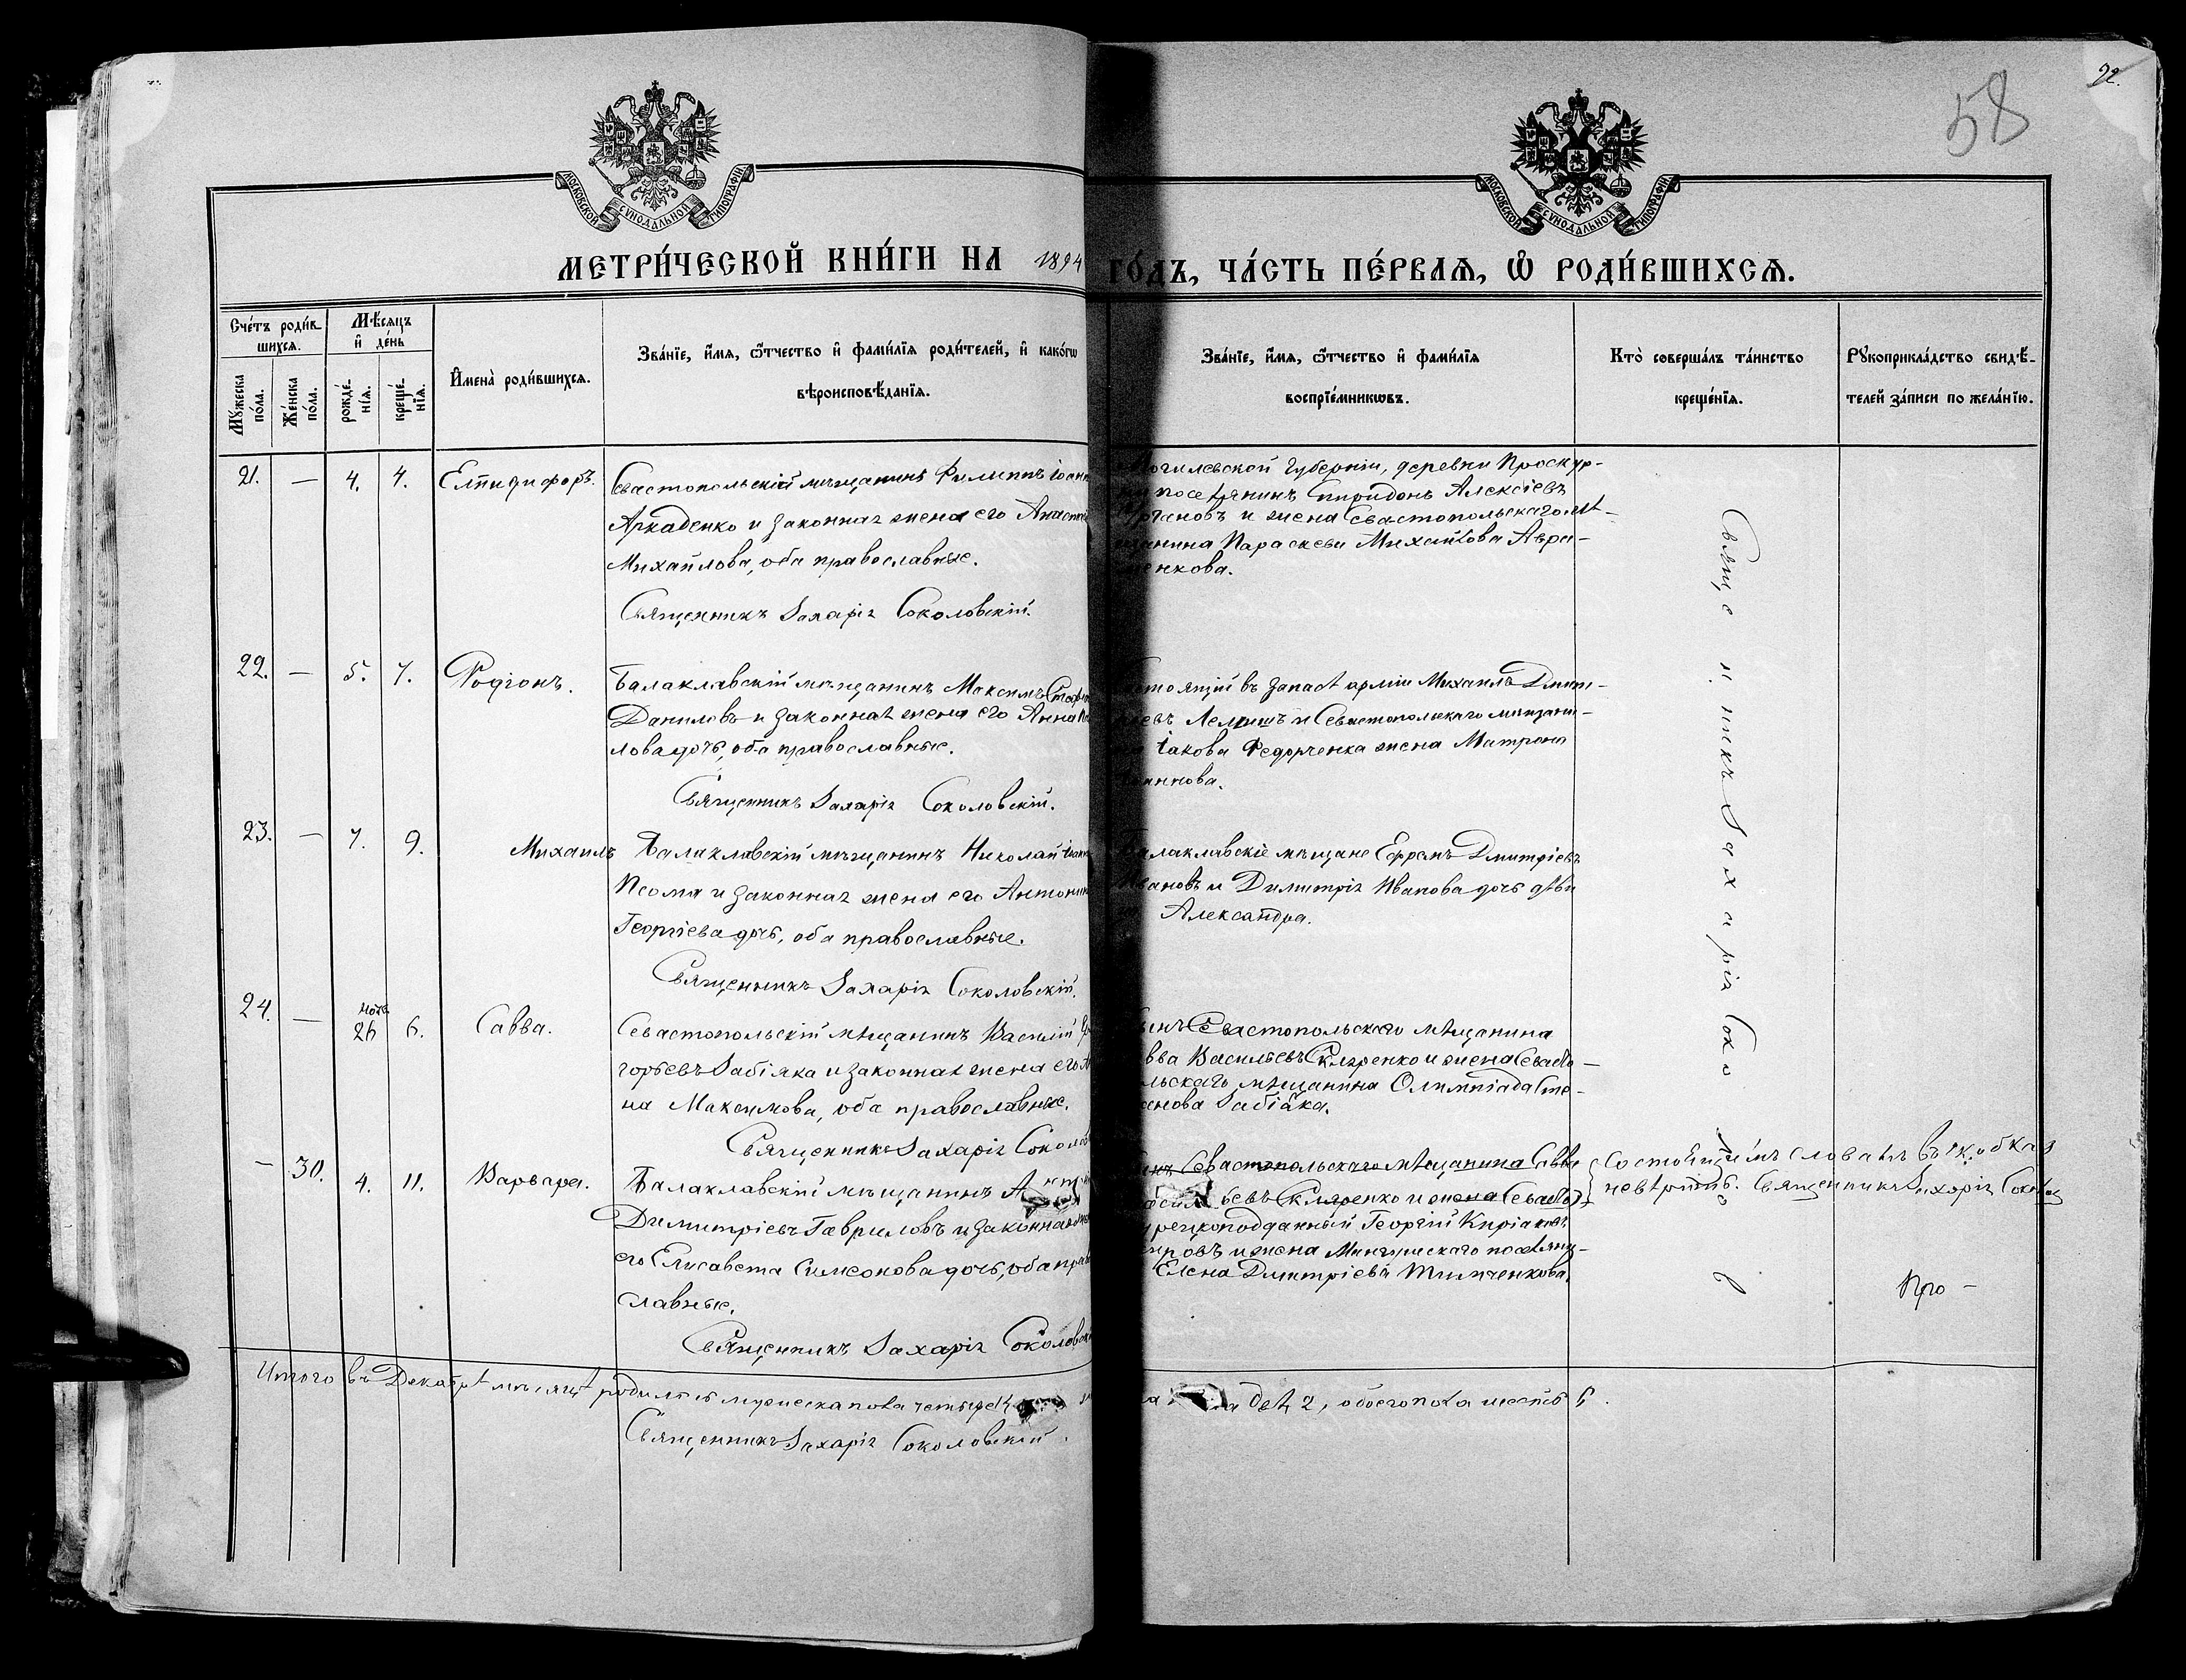 58
92.
МОСКОВСКОЙ СѴНОДАЛЬНОЙ ТИПОГРАФІИ
МОСКОВСКОЙ СѴНОДАЛЬНОЙ ТИПОГРАФІИ
МЕТРИ́ЧЕСКОЙ КНИ́ГИ НА 1894 ГО́ДЪ, ЧА́СТЬ ПЕ́РВАЯ, Ѡ РОДИ́ВШИХСЯ.
Сче́тъ роди́вшихся.
Мꙋ́жеска по́ла.
Же́нска по́ла.
Мѣ́сяцъ и҆ де́нь
рожде́нїя.
креще́нїя.
И҆мена̀ роди́вшихся.
Зва́нїе, и҆́мя, ѻ҆́тчество и҆ фами́лїя роди́телей, и҆ како́гѡ
вѣроисповѣ́данїя.
Зва́нїе, и҆́мя, ѻ҆́тчество и҆ фами́лїя
воспрїе́мникѡвъ.
Кто̀ соверша́лъ та́инство
креще́нїя.
Рꙋкоприкла́дство свидѣ́-
телей за́писи по жела́нїю.
21. — 4. 4. Елпидифоръ.
Севастопольскій мѣщанинъ Филиппъ Іоан
Аркаденко и законная жена его Анаста
Михайлова, оба православные.
Священникъ Захарія Соколовскій.
Могилевской Губерніи, деревни Проскур-
поселянинъ Спиридонъ Алексіевъ
и жена Севастопольскаго мѣ-
щанина Параскева Михайлова Авра-
менкова.
22. — 5. 7. Родіонъ.
Балаклавскій мѣщанинъ Максимъ Стеф
Даниловъ и законная жена его Анна
лова дочь, оба православные.
Священникъ Захарія Соколовскій.
Состоящій въ запасѣ арміи Михаилъ Дмит-
ріевъ Лемишъ и Севастопольскаго мѣщани-
на Іакова Федорченка жена Матрона
Іоаннова.
23. — 7. 9. Михаилъ
Балаклавскій мѣщанинъ Николай Іоан
Псома и законная жена его Антонин
Георгіева дочь, оба православные.
Священникъ Захарія Соколовскій.
Балаклавскіе мѣщане Ефремъ Дмитріевъ
Ивановъ и Димитрія Иванова дочь дѣви
Александра.
24. — Нояб. 26 6. Савва.
Севастопольскій мѣщанинъ Василій Гри
горьевъ Забіяка и законная жена его А
на Максимова, оба православные.
Священникъ Захарія Соколов
Сынъ Севастопольскаго мѣщанина
Савва Васильевъ Скляренко и жена Севасто-
польскаго мѣщанина Олимпіада Сте-
фанова Забіяка.
— 30. 4. 11. Варвара.
Балаклавскій мѣщанинъ
Димитріевъ Гавриловъ и законная жена
его Елисавета Симеонова дочь, оба право
славные.
Священникъ Захарія Соколовскій
Сынъ Севастопольскаго мѣщанина Савва
Васильевъ Скляренко и жена Севасто)
Греческоподданный Георгій Киріаковъ
и жена поселянина
Елена Дмитріева Тимченкова.
Состоящимъ словамъ въ скобкахъ
не вѣрить. Священникъ Захарія Соколов
Священникъ Захарія Соко
Про-
Итого въ Декабрѣ мѣсяцѣ родилось мужеска пола четыре
двѣ 2, обоего пола шесть 6.
Священникъ Захарія Соколовскій.